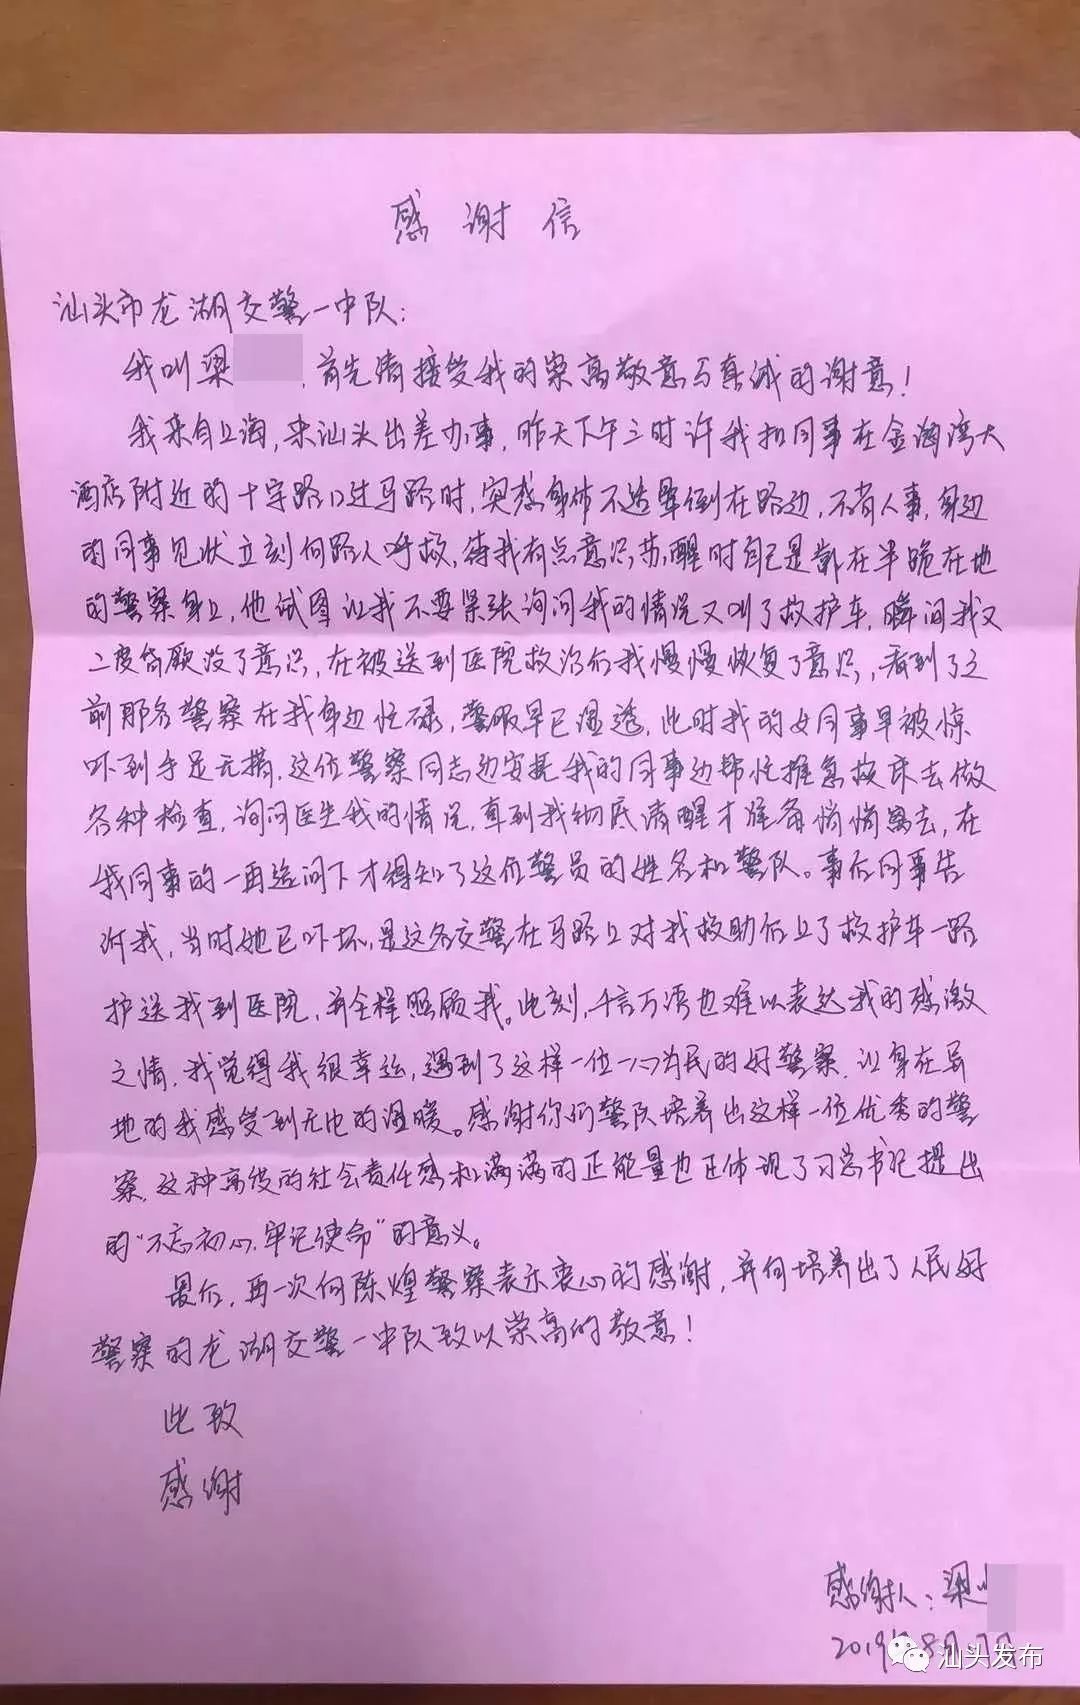 感谢信
汕头市龙湖交警一中队:
我叫梁 ,首先请接受我的崇高敬意与真诚的谢意!
我来自上海,来汕头出差办事,昨天下午三时许我和同事在金海湾大
酒店附近的十字路口过马路时,突感身体不适晕倒在路边,不省人事,身边
的同事见状立刻向路人呼救,待我有点意识苏醒时自己是靠在半跪在地
的警察身上,他试图让我不要紧张询问我的情况又叫了救护车,瞬间我又
二度昏厥没了意识,在被送到医院救治后我慢慢恢复了意识,看到了之
前那名警察在我身边忙碌,警服早已湿透,此时我的女同事早被惊
吓到手足无措,这位警察同志边安抚我的同事边帮忙推急救床去做
各种检查,询问医生我的情况,直到我彻底清醒才准备悄悄离去,在
我同事的一再追问下才得知了这位警员的姓名和警队。事后同事告
诉我,当时她已吓坏,是这名交警在马路上对我救助后上了救护车一路
护送我到医院,并全程照顾我。此刻,千言万语也难以表达我的感激
之情,我觉得我很幸运,遇到了这样一位一心为民的好警察,让身在异
地的我感受到无比的温暖。感谢你们警队培养出这样一位优秀的警
察,这种高度的社会责任感和满满的正能量也正体现了习总书记提出
的“不忘初心,牢记使命”的意义。
最后,再一次向陈煌警察表示衷心的感谢,并向培养出了人民好
警察的龙湖交警一中队致以崇高的敬意!
此致
感谢
感谢人:梁
2019年8月
汕头发布